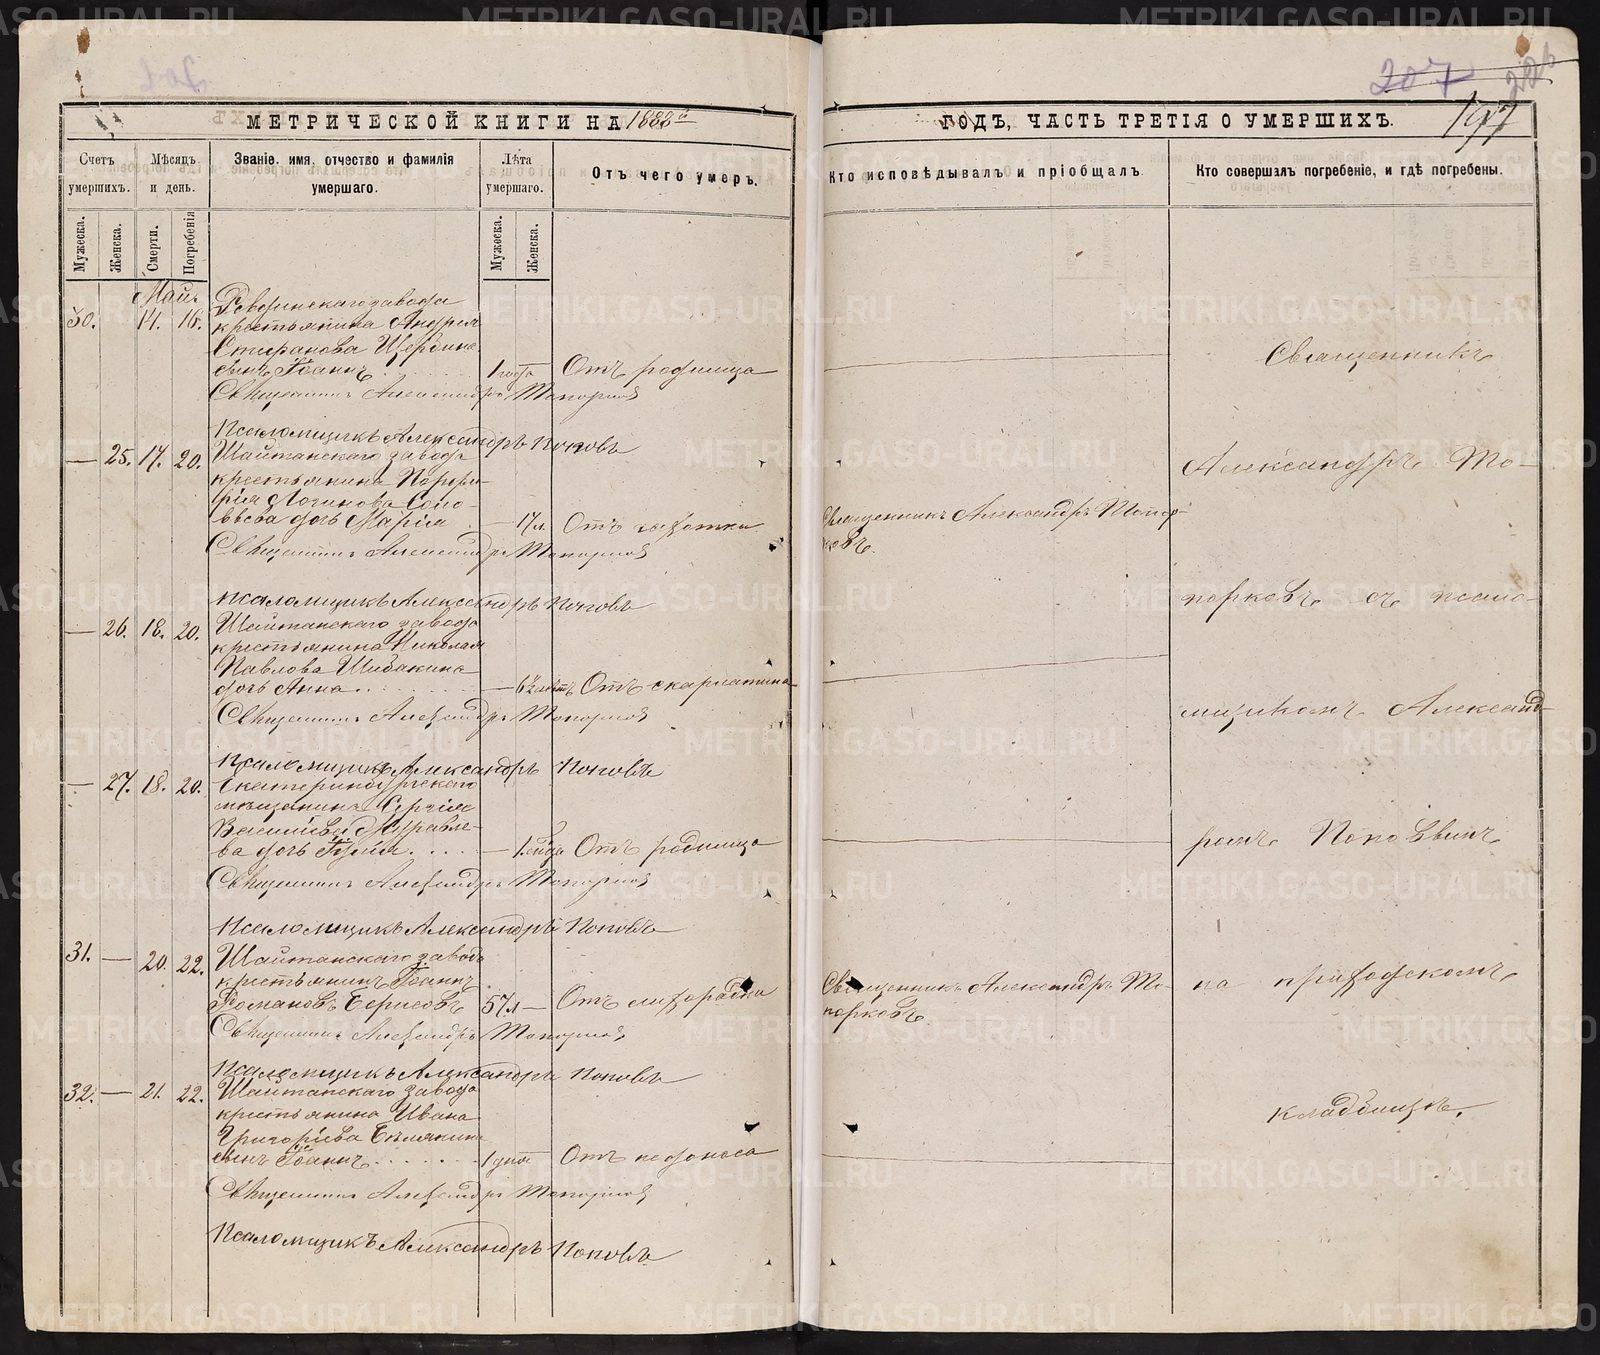 207
197
МЕТРИЧЕСКОЙ КНИГИ НА 1888й
ГОДЪ, ЧАСТЬ ТРЕТІЯ О УМЕРШИХЪ.
Счетъ умершихъ.
Мѣсяцъ и день.
Званіе, имя, отчество и фамилія умершаго.
Лѣта умершаго.
Отъ чего умеръ.
Кто исповѣдывалъ и пріобщалъ.
Кто совершалъ погребеніе, и гдѣ погребены.
Мужеска.
Женска.
Смерти.
Погребенія
Мужеска.
Женска.
Май.
30. 14. 16. Ревдинскаго завода
крестьянина Андрея
сынъ Іоаннъ 1 года Отъ родимца
Священникъ Александръ Топорковъ
Псаломщикъ Александръ Поповъ
— 25. 17. 20. Шайтанскаго завода
крестьянина Порфи-
рія Логинова Соло-
вьева дочь Марія — 17 л. Отъ чахотки
Священникъ Александръ Топорковъ
Псаломщикъ Александръ Поповъ
— 26. 18. 20. Шайтанскаго завода
крестьянина Николая
Павлова Шибакина
дочь Анна — 6½ лѣтъ Отъ скарлатины
Священникъ Александръ Топорковъ
Псаломщикъ Александръ Поповъ
— 27. 18. 20. Екатеринбургскаго
мѣщанина Сергія
Васильева Журавле-
ва дочь — Отъ родимца
Священникъ Александръ Топорковъ
Псаломщикъ Александръ Поповъ
31. — 20. 22. Шайтанскаго завода
крестьянинъ Іоаннъ
Романовъ Борисовъ 57 л — Отъ лихорадки
Священникъ Александръ Топорковъ
Псаломщикъ Александръ Поповъ
32. — 21. 22. Шайтанскаго завода
крестьянина Ивана
Григорьева
сынъ Іоаннъ 1 дня Отъ недоноса
Священникъ Александръ Топорковъ
Псаломщикъ Александръ Поповъ
Священникъ Александръ Топор-
ковъ.
Священникъ Александръ То-
порковъ
Священникъ
Александръ То-
порковъ съ псало-
мщикомъ Александ-
ромъ Поповымъ
на приходскомъ
кладбищѣ.
METRIKI.GASO-URAL.RU